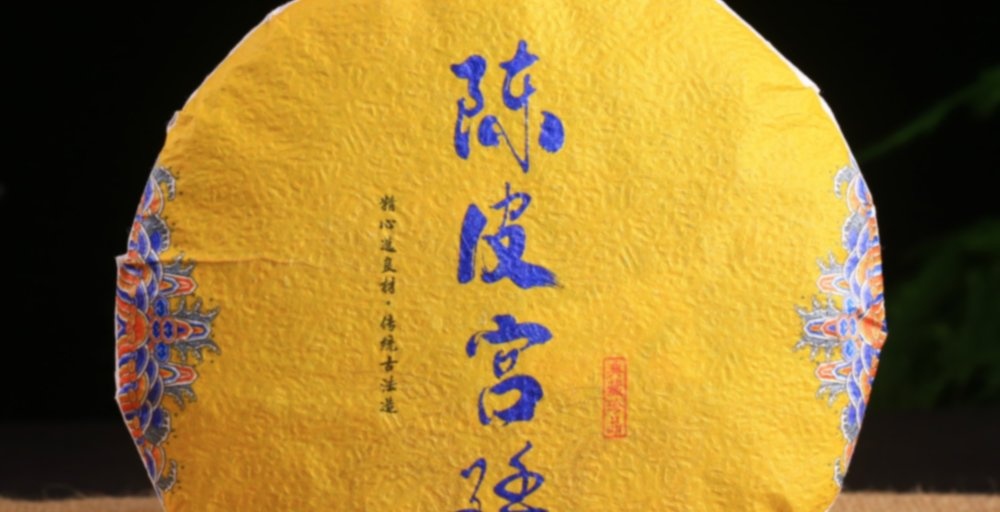 陈皮宫廷
精心选良材·传统古法造